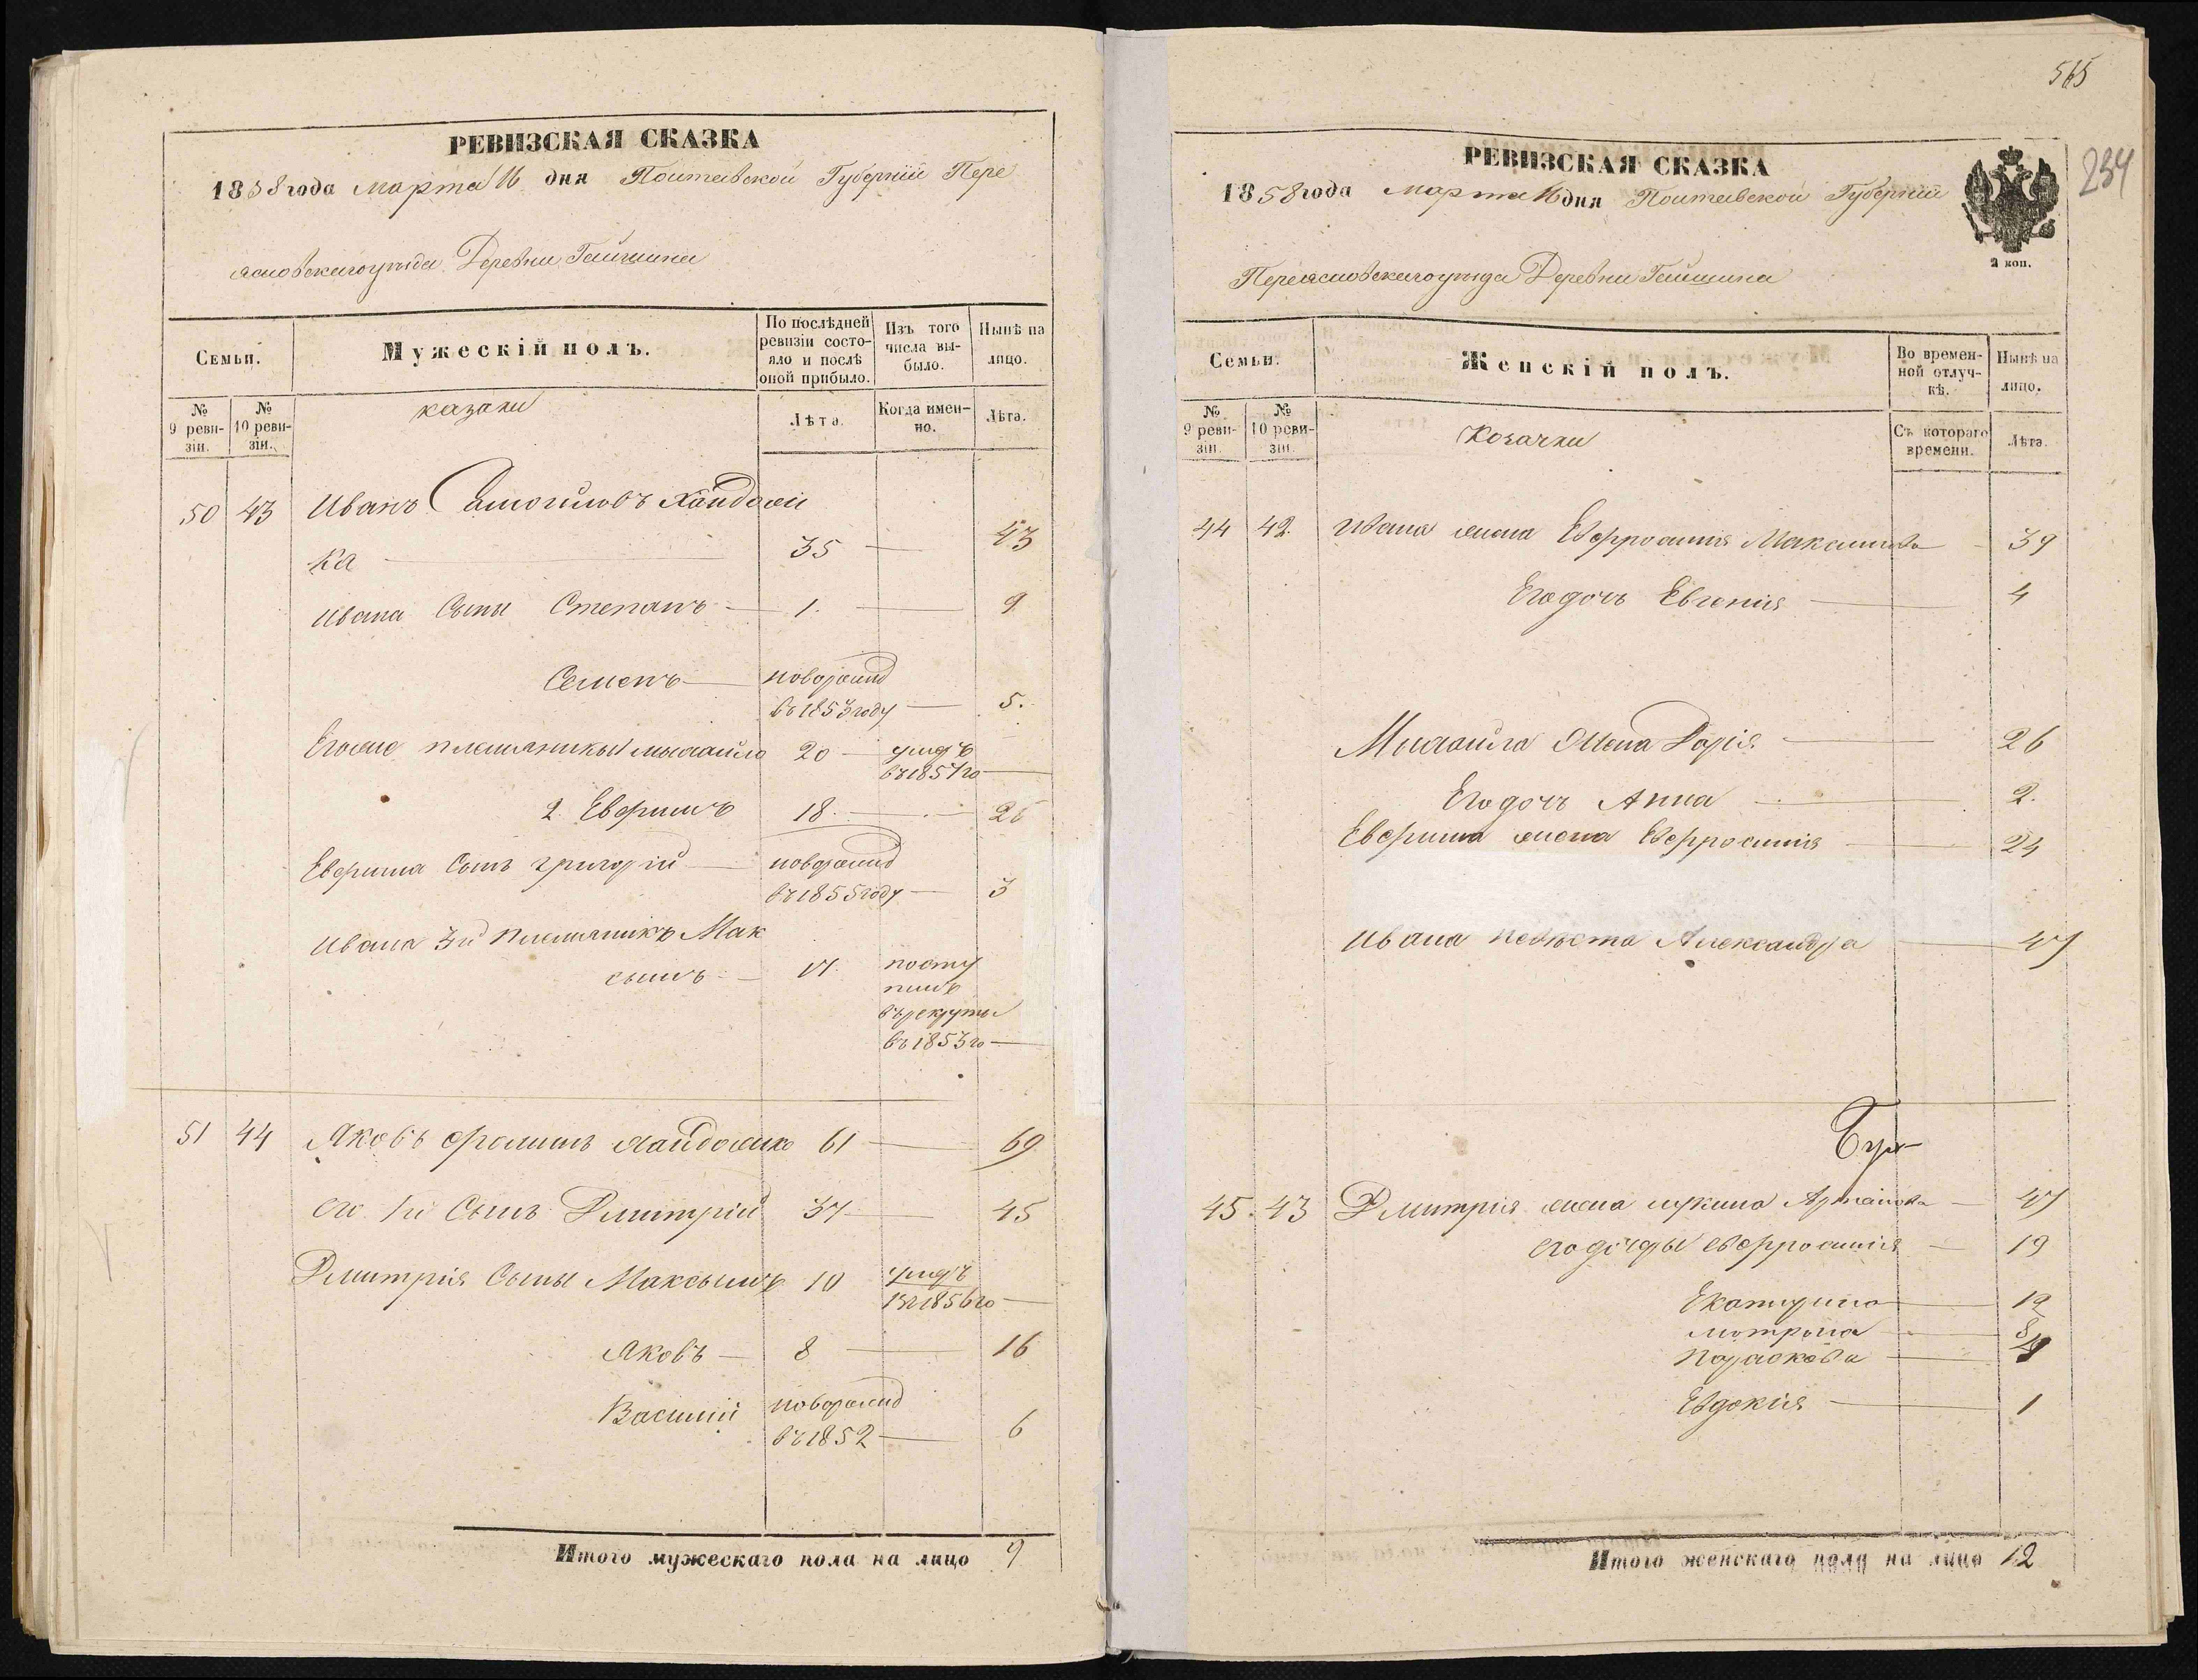 РЕВИЗСКАЯ СКАЗКА
1858 года марта 16 дня Полтавской Губерніи Пере
яславскаго уезда Деревни Гайшина
Семьи.
Мужескій полъ.
По послѣдней ревизіи состояло и послѣ оной прибыло.
Изъ того числа выбыло.
Нынѣ на лицо.
№ 9 ревизіи.
№ 10 ревизіи.
казаки
Лѣта.
Когда именно.
Лѣта.
50 43 Иванъ Самойловъ Хайдосй
ка 35 43
Ивана Сыны Степанъ 1. 9
Семенъ новорожд
въ 1853 году 5.
Егоже племянники 1 мыхайло 20 умеръ
въ 1857 го
2. Евфимъ 18. 26
Евфима Сынъ григорій новорожд
въ 1855 году 3
Ивана 3й племянникъ Мак
сымъ 17. посту
пилъ
въ рекруты
въ 1853 го
51 44 Яковъ 61 69
его 1й Сынъ Дмитрій 37 45
Дмитрія Сыны Максымъ 10 умеръ
въ 1856 го
Яковъ 8 16
Василій новорожд
въ 1852 6
Итого мужескаго пола на лицо 9
565
234
РЕВИЗСКАЯ СКАЗКА
1858 года марта 16 дня Полтавской Губерніи
2 коп.
Переяславскаго уезда Деревни Гайшина
Семьи.
Женскій полъ.
Во временной отлучкѣ.
Нынѣ на лицо.
№ 9 ревизіи.
№ 10 ревизіи.
Козачки
Съ котораго времени.
Лѣта.
44 42. Ивана жена Евфросинія Максимова 39
Его дочь Евгенія 4
Михайла жена Дарія 26
Его дочь Анна 2.
Евфима жена Евфросинія 24
Ивана невѣста Александра 47
45. 43 Дмитрія жена 47
его дочеры евфросинія 19
Екатирина 12
мотрона 8
Параскова 4
Евдокія 1
Итого женскаго пола на лицо 12